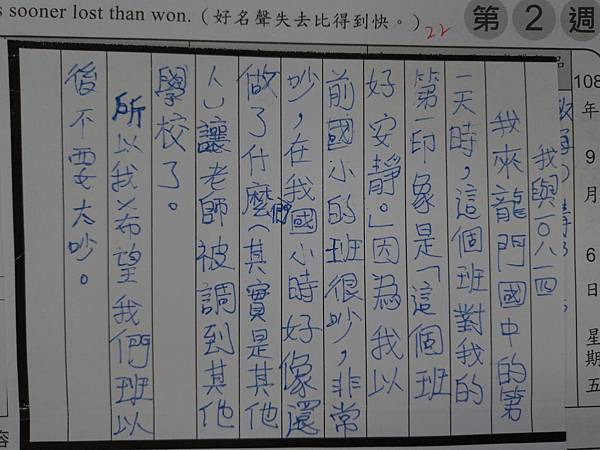 s sooner lost than won.（好名聲失去比得到快。）
22
第2週
108
年
9
月
6
日
星
期
五
我與一〇八一四
我來龍門國中的第
一天時，這個班對我的
第一印象是「這個班
好安靜。」因為我以
前國小的班很吵，非常
吵，在我們國小時好像還
做了什麼（其實是其他
人）讓老師被調到其他
學校了。
所以我希望我們班以
後不要太吵。
容